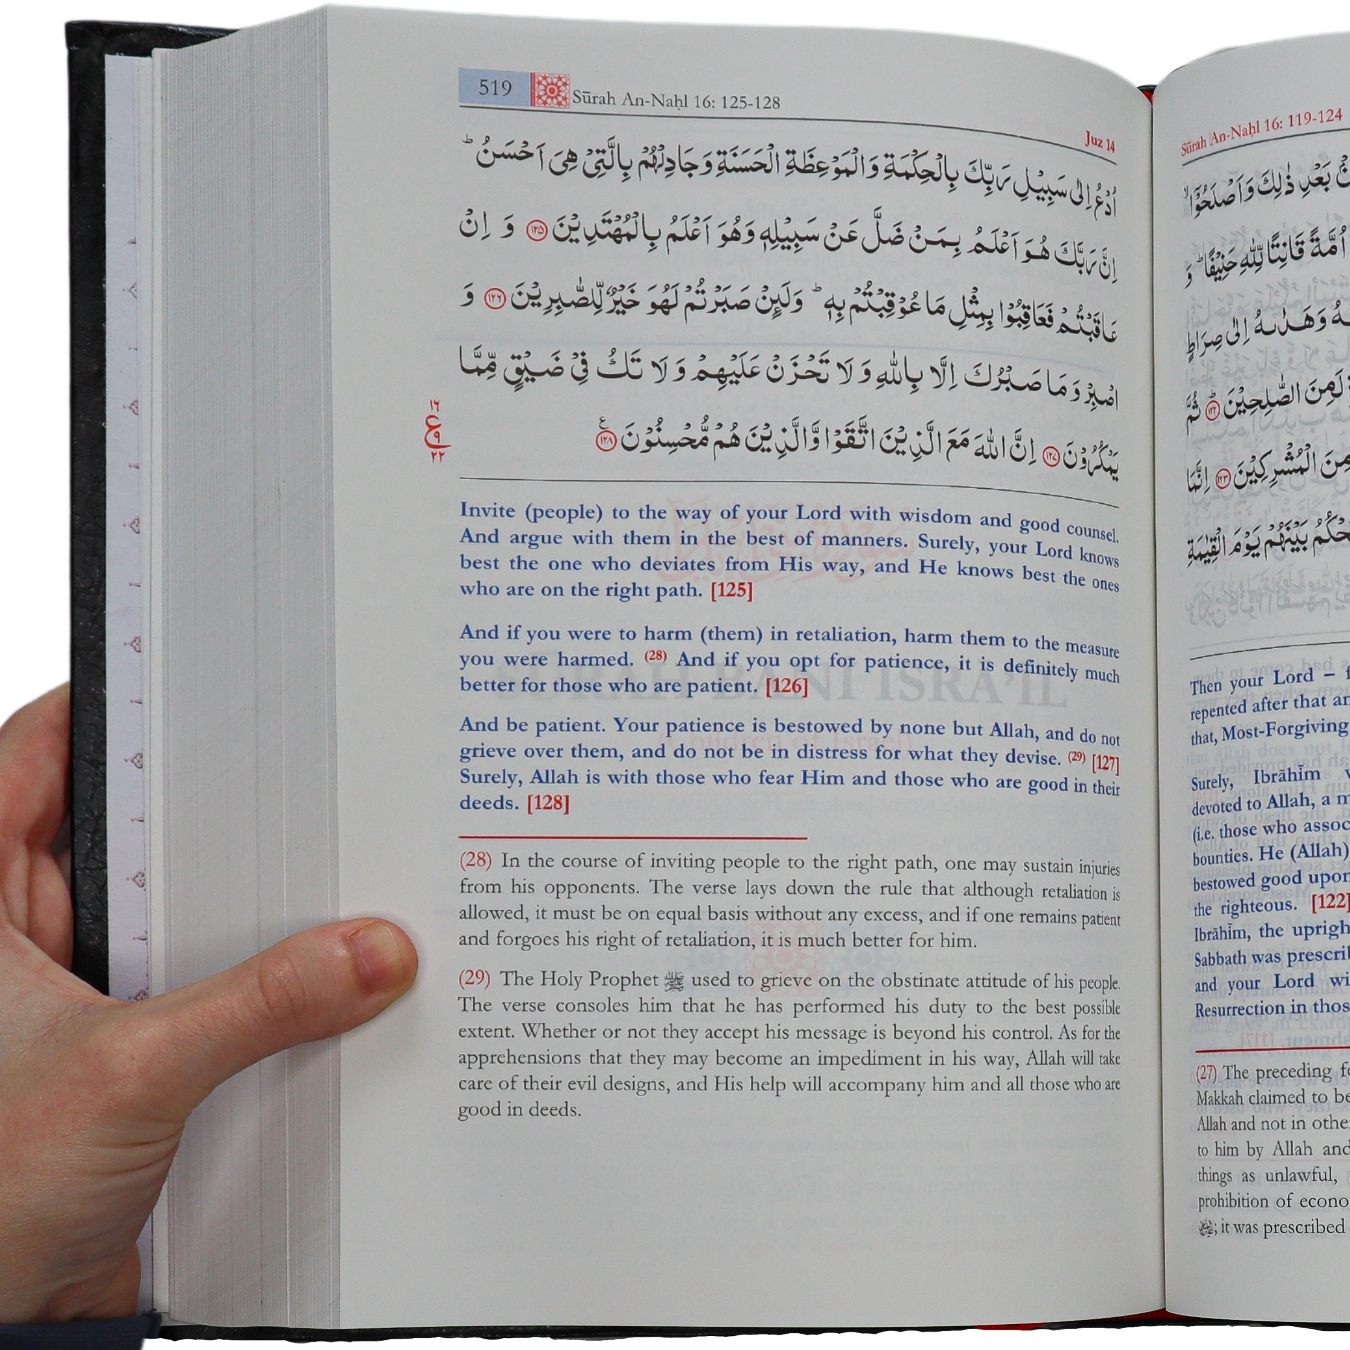 519 Sūrah An-Naḥl 16: 125-128
Juz 14
اُدْعُ اِلٰى سَبِيْلِ رَبِّكَ بِالْحِكْمَةِ وَالْمَوْعِظَةِ الْحَسَنَةِ وَجَادِلْهُمْ بِالَّتِيْ هِيَ اَحْسَنُ ؕ
اِنَّ رَبَّكَ هُوَ اَعْلَمُ بِمَنْ ضَلَّ عَنْ سَبِيْلِهٖ وَهُوَ اَعْلَمُ بِالْمُهْتَدِيْنَ ﴿۱۲۵﴾ وَ اِنْ
عَاقَبْتُمْ فَعَاقِبُوْا بِمِثْلِ مَا عُوْقِبْتُمْ بِهٖ ؕ وَلَئِنْ صَبَرْتُمْ لَهُوَ خَيْرٌ لِّلصّٰبِرِيْنَ ﴿۱۲۶﴾ وَ
اصْبِرْ وَمَا صَبْرُكَ اِلَّا بِاللّٰهِ وَلَا تَحْزَنْ عَلَيْهِمْ وَلَا تَكُ فِيْ ضَيْقٍ مِّمَّا
يَمْكُرُوْنَ ﴿۱۲۷﴾ اِنَّ اللّٰهَ مَعَ الَّذِيْنَ اتَّقَوْا وَّالَّذِيْنَ هُمْ مُّحْسِنُوْنَ ﴿۱۲۸﴾
۱۶
ع
۹
۲۲
Invite (people) to the way of your Lord with wisdom and good counsel.
And argue with them in the best of manners. Surely, your Lord knows
best the one who deviates from His way, and He knows best the ones
who are on the right path. [125]
And if you were to harm (them) in retaliation, harm them to the measure
you were harmed. (28) And if you opt for patience, it is definitely much
better for those who are patient. [126]
And be patient. Your patience is bestowed by none but Allah, and do not
grieve over them, and do not be in distress for what they devise. (29) [127]
Surely, Allah is with those who fear Him and those who are good in their
deeds. [128]
(28) In the course of inviting people to the right path, one may sustain injuries
from his opponents. The verse lays down the rule that although retaliation is
allowed, it must be on equal basis without any excess, and if one remains patient
and forgoes his right of retaliation, it is much better for him.
(29) The Holy Prophet ﷺ used to grieve on the obstinate attitude of his people.
The verse consoles him that he has performed his duty to the best possible
extent. Whether or not they accept his message is beyond his control. As for the
apprehensions that they may become an impediment in his way, Allah will take
care of their evil designs, and His help will accompany him and all those who are
good in deeds.
Sūrah An-Naḥl 16: 119-124
بَعْدِ ذٰلِكَ وَاَصْلَحُوْۤا ۙ
اُمَّةً قَانِتًا لِّلّٰهِ حَنِيْفًا ؕ وَ
وَهَدٰىهُ اِلٰى صِرَاطٍ
لَمِنَ الصّٰلِحِيْنَ ﴿۱۲۲﴾ ثُمَّ
مِنَ الْمُشْرِكِيْنَ ﴿۱۲۳﴾ اِنَّمَا
بَيْنَهُمْ يَوْمَ الْقِيٰمَةِ
Then your Lord –
repented after that
that, Most-Forgiving
Surely, Ibrāhīm
devoted to Allah, a
(i.e. those who
bounties. He (Allah)
bestowed good upon
the righteous. [122]
Ibrāhīm, the
Sabbath was
and your Lord
Resurrection in
(27) The preceding
Makkah claimed to be
Allah and not in
to him by Allah and
things as unlawful,
prohibition of
ﷺ; it was prescribed